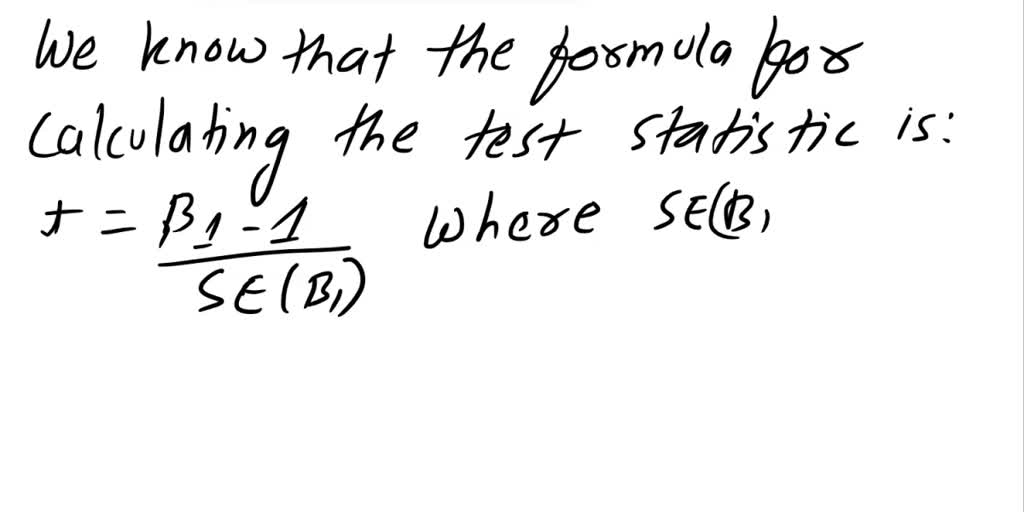 We know that the formula for
calculating the test statistic is:
t = β1 - 1 where SE(β1
SE(β1)